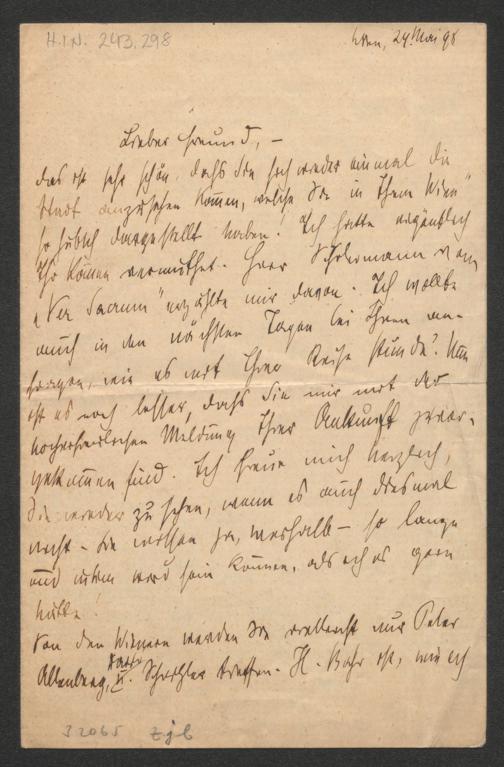 H.I.N. 243.298
Wien, 24. Mai 98
Lieber Freund, –
das ist sehr schön, dass Sie sich wieder einmal die
Stadt anzusehen kommen, welche Sie in Ihrem "Wien"
so hübsch dargestellt haben! Ich hatte eigentlich
Ihr Kommen vermuthet. Herr Schölermann vom
„Ver Sacrum" erzählte mir davon. Ich wollte
auch in den nächsten Tagen bei Ihnen an-
fragen, wie es mit Ihrer Reise stünde? Nun
ist es noch besser, dass Sie mir mit der
hocherfreulichen Meldung Ihrer Ankunft zuvor-
gekommen sind. Ich freue mich herzlich,
Sie wieder zu sehen, wenn es auch diesmal
nicht – Sie wissen ja, weshalb – so lange
und wird sein können, als ich es gern
hätte!
Von den Wienern werden Sie vielleicht nur Peter
Altenberg, u. Schnitzler treffen. H. Bahr ist, wie ich
32065 Zjb